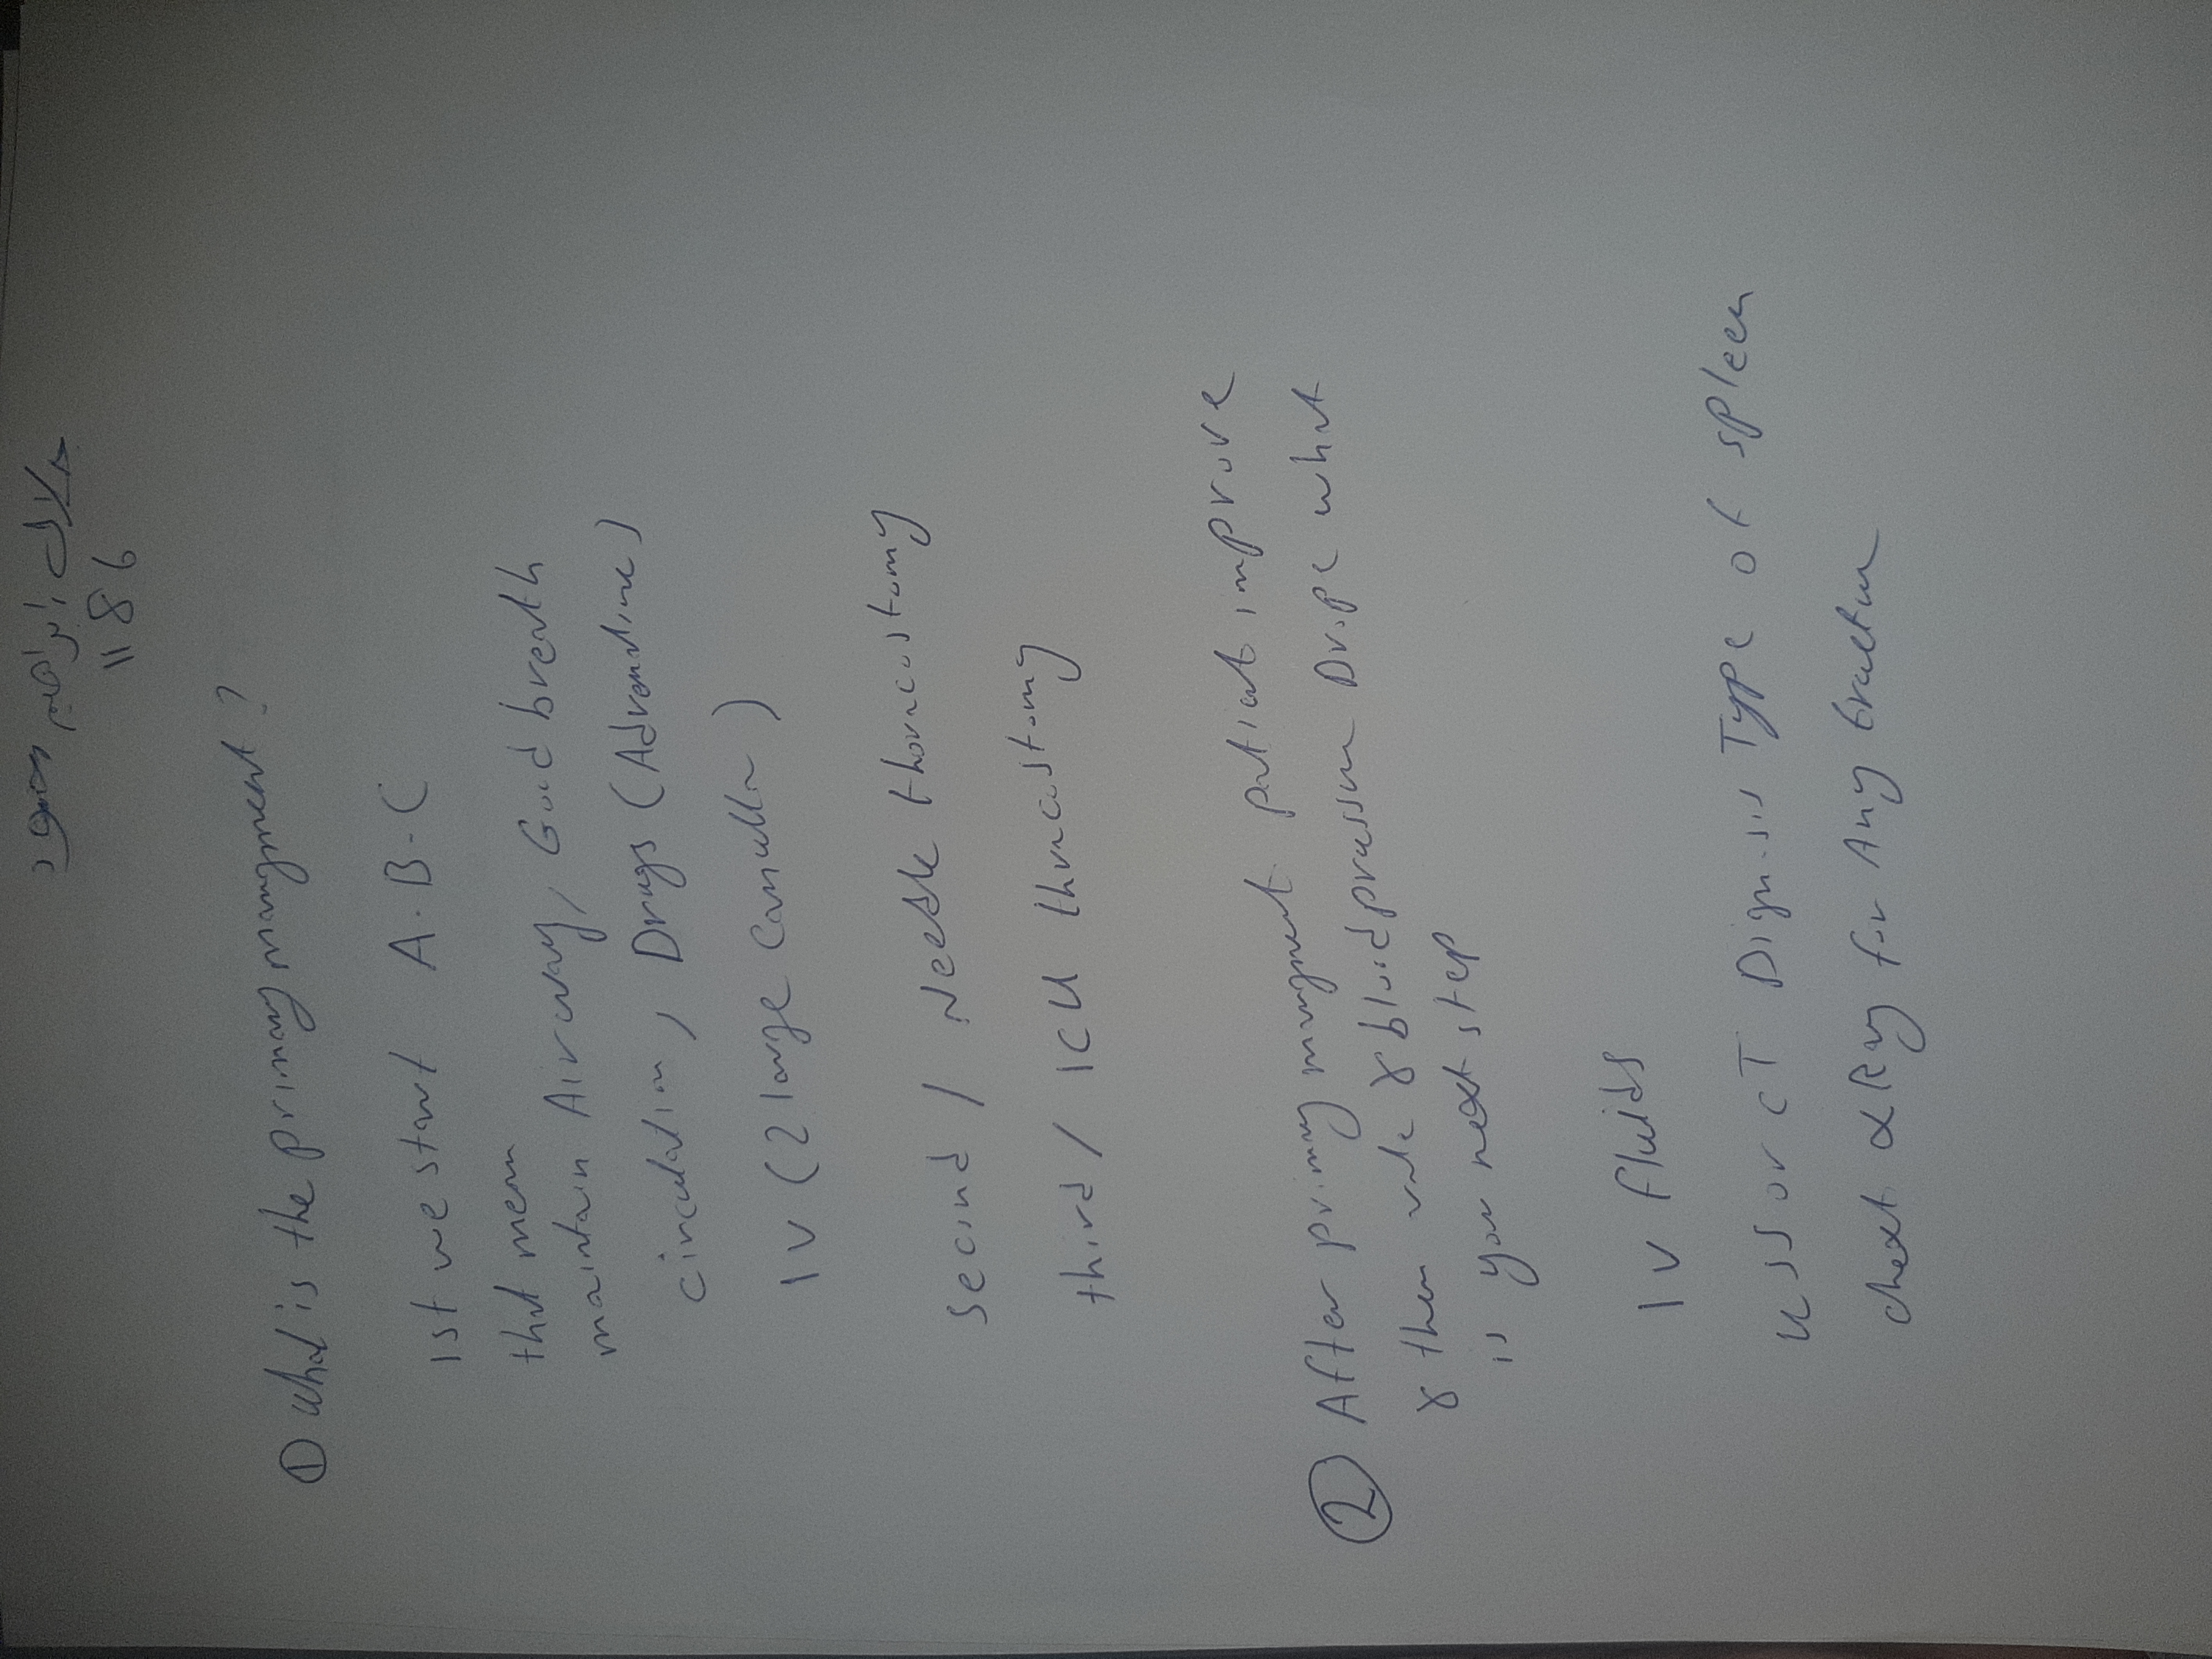 بلال إبراهيم
1186
① what is the primary management?
1st we start A.B-C
that mean
maintain Airway, Good breath
circulation, Drugs (Adrenaline)
IV (2 large Canulla)
second / Needle thoracostomy
third / ICU thracostomy
② After primary managment patient improve
& then blood pressure Drope what
is your next step
IV fluids
USS or CT Dignosis Type of spleen
chext x Ray for Any fractur